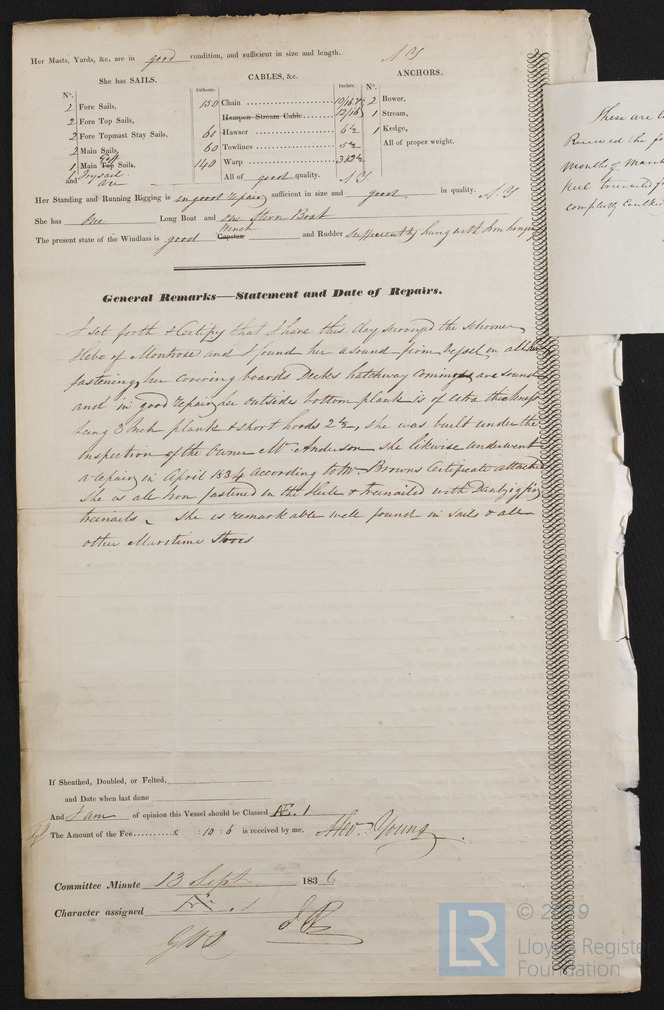 Her Masts, Yards, &c. are in good condition, and sufficient in size and length. A Y
She has SAILS. CABLES, &c. ANCHORS.
No. Fathoms. Inches. No.
2 Fore Sails, 150 Chain 2 Bower,
2 Fore Top Sails, Hempen Stream Cable 1 Stream,
2 Fore Topmast Stay Sails, 60 Hawser 6½ 1 Kedge,
2 Main Sails, 60 Towlines 5½ All of proper weight.
1 Main Top Sails, 140 Warp
and Trysail are All of good quality. A Y
Her Standing and Running Rigging is in good repair sufficient in size and good in quality. A Y
She has One Long Boat and one Stern Boat
The present state of the Windlass is good Capstan and Rudder sufficiently hung with Iron
General Remarks—Statement and Date of Repairs.
I set forth & Certify that I have this day surveyed the schooner
Hebe of Montrose and I found her a sound firm vessel in all her
fastening, her covering boards Decks hatchway comings are sound
and in good repair, her outsides bottom plank is of extra thickness
being 3 Inch plank & short hoods 2½, she was built under the
inspection of the Owner Mr Anderson she likewise underwent
a repair in April 1834 according to Mr Browns Certificate attached
She is all Iron fastened in the Hull & treinailed with Dantzig fir
treinails, She is remarkable well found in Sails & all
other Maritime Stores
If Sheathed, Doubled, or Felted,
and Date when last done
And I am of opinion this Vessel should be Classed Æ. 1
The Amount of the Fee £ : 10 : 6 is received by me, Alexr. Young
Committee Minute 13 Sept 1836
Character assigned
These are to
Received the
months of March
keel treinailed
completely Caulked
© 2019
LR
Lloyd's Register
Foundation